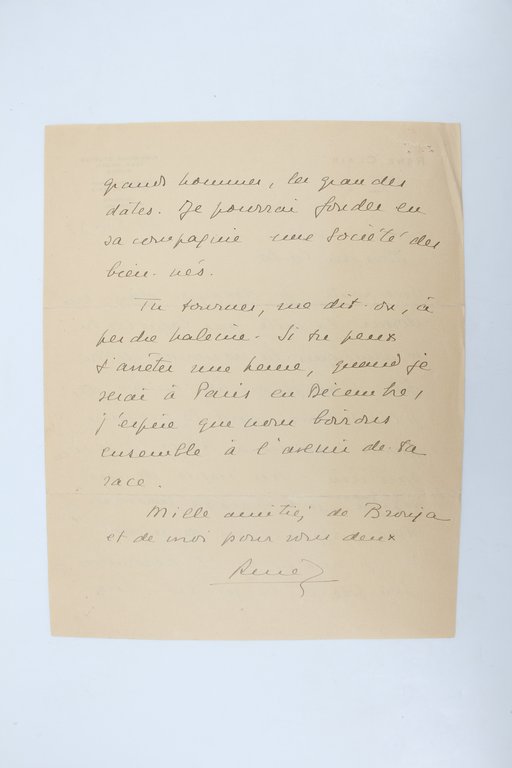 grands hommes, les grandes
dâtes. Je pourrai fonder en
sa compagnie une Société des
bien-nés.
Tu tournes, me dit-on, à
perdre haleine. Si tu peux
t'arrêter une heure, quand je
serai à Paris en Décembre,
j'espère que nous boirons
ensemble à l'avenir de ta
race.
Mille amitiés de Bronja
et de moi pour vous deux
René